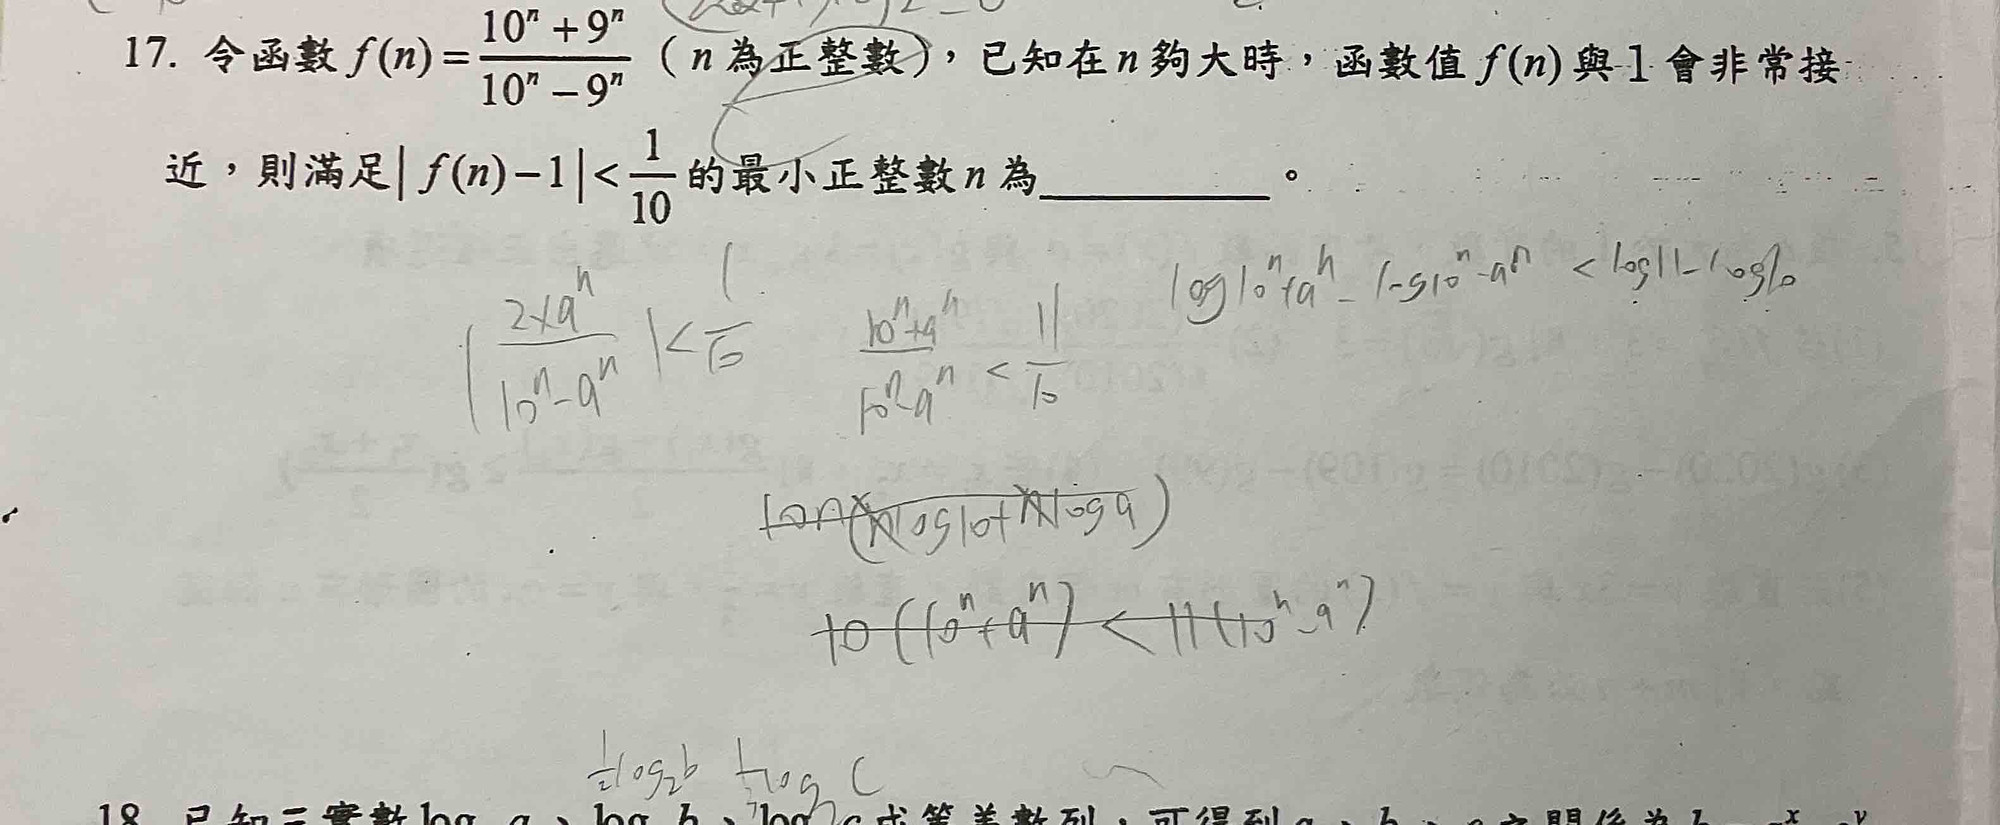 17. 令函數 f(n) = \frac{10^n + 9^n}{10^n - 9^n} (n 為正整數),已知在 n 夠大時,函數值 f(n) 與 1 會非常接
近,則滿足 | f(n) - 1 | < \frac{1}{10} 的最小正整數 n 為________。
| \frac{2×9^n}{10^n - 9^n} | < \frac{1}{10}
\frac{10^n + 9^n}{10^n - 9^n} < \frac{11}{10}
log10^n+9^n - log10^n-9^n < log11 - log10
(nlog10 + nlog9)
10(10^n + 9^n) < 11(10^n - 9^n)
\frac{1}{2}log_2 b
18. 已知三實數 log a、log b、log c 成等差數列,可得到 a、b、c 之關係為 b